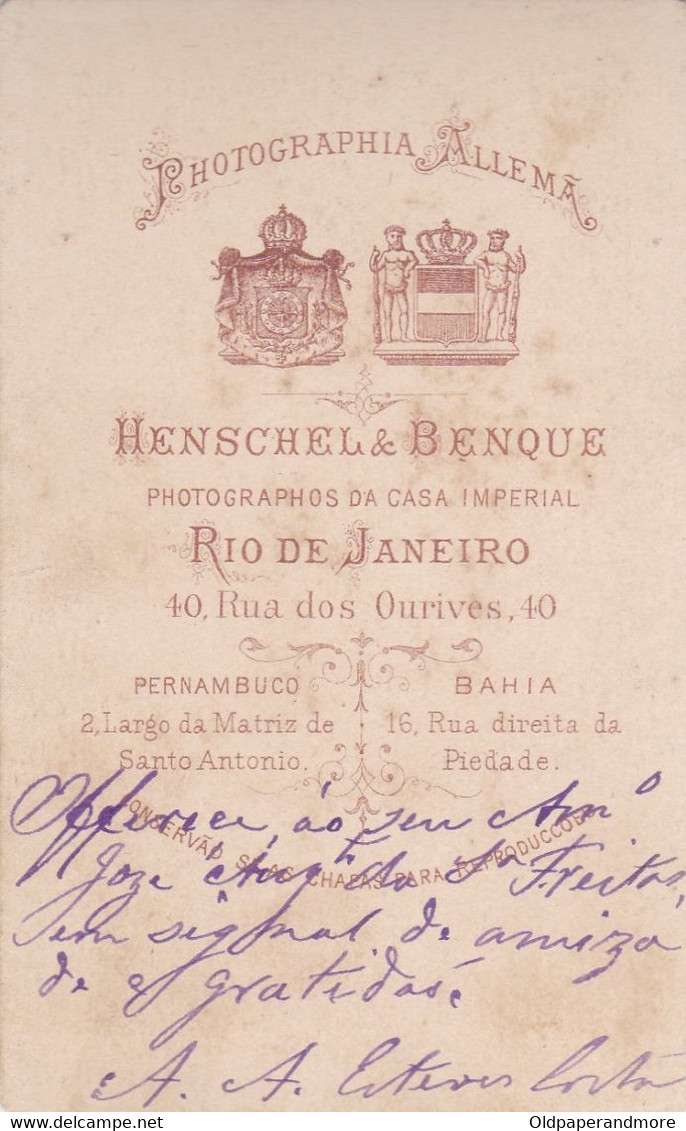 PHOTOGRAPHIA ALLEMÃ
HENSCHEL & BENQUE
PHOTOGRAPHOS DA CASA IMPERIAL
RIO DE JANEIRO
40, Rua dos Ourives, 40
PERNAMBUCO
2, Largo da Matriz de
Santo Antonio.
BAHIA
16, Rua direita da
Piedade.
CONSERVÃO SE AS CHAPAS PARA REPRODUCÇÕES
Offerece, áo seu Amº
Joze da Sª Freitas,
em signal de amiza
de e gratidaó.
A. A. Esteves Costa
Oldpaperandmore